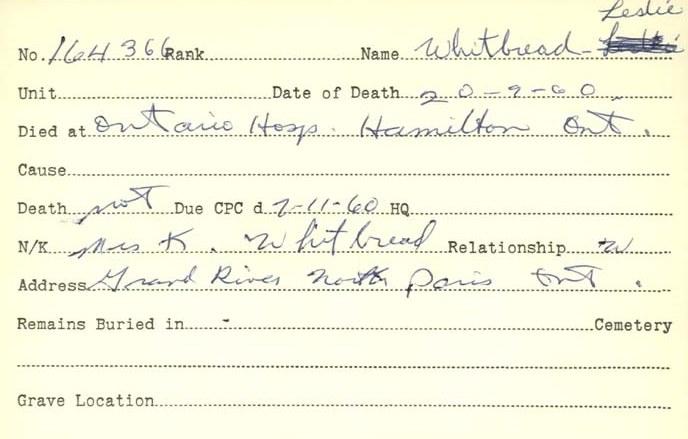 Leslie
No. 164366 Rank Name Whitbread-
Unit Date of Death 20-9-60.
Died at Ontario Hosp. Hamilton Ont.
Cause
Death not Due CPC d 2-11-60 HQ
N/K Mrs K. Whitbread Relationship W
Address Grand River North Paris Ont.
Remains Buried in - Cemetery
Grave Location